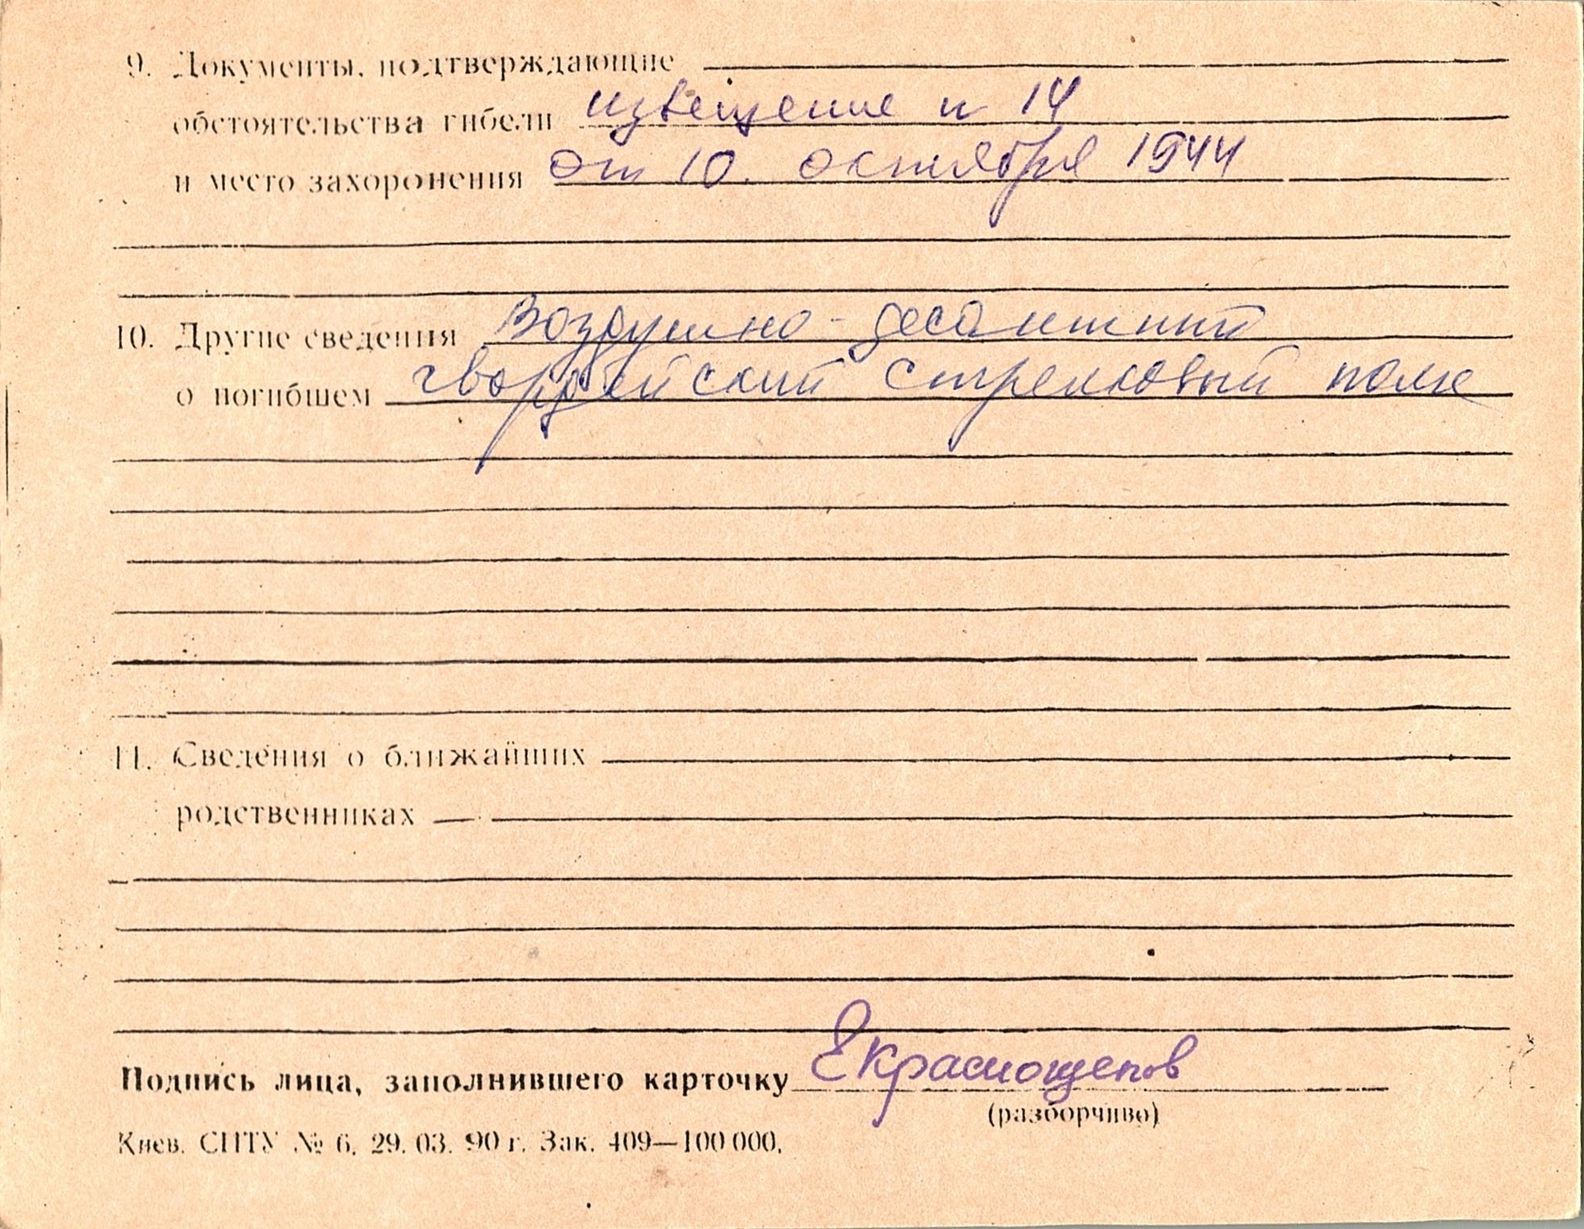 9. Документы, подтверждающие
обстоятельства гибели извещение n 14
и место захоронения от 10. октября 1944
10. Другие сведения Воздушно-десантный
о погибшем гвардейский стрелковый полк
11. Сведения о ближайших
родственниках
Подпись лица, заполнившего карточку ЕКраснощепов
(разборчиво)
Киев. СПТУ № 6. 29. 03. 90 г. Зак. 409—100 000.